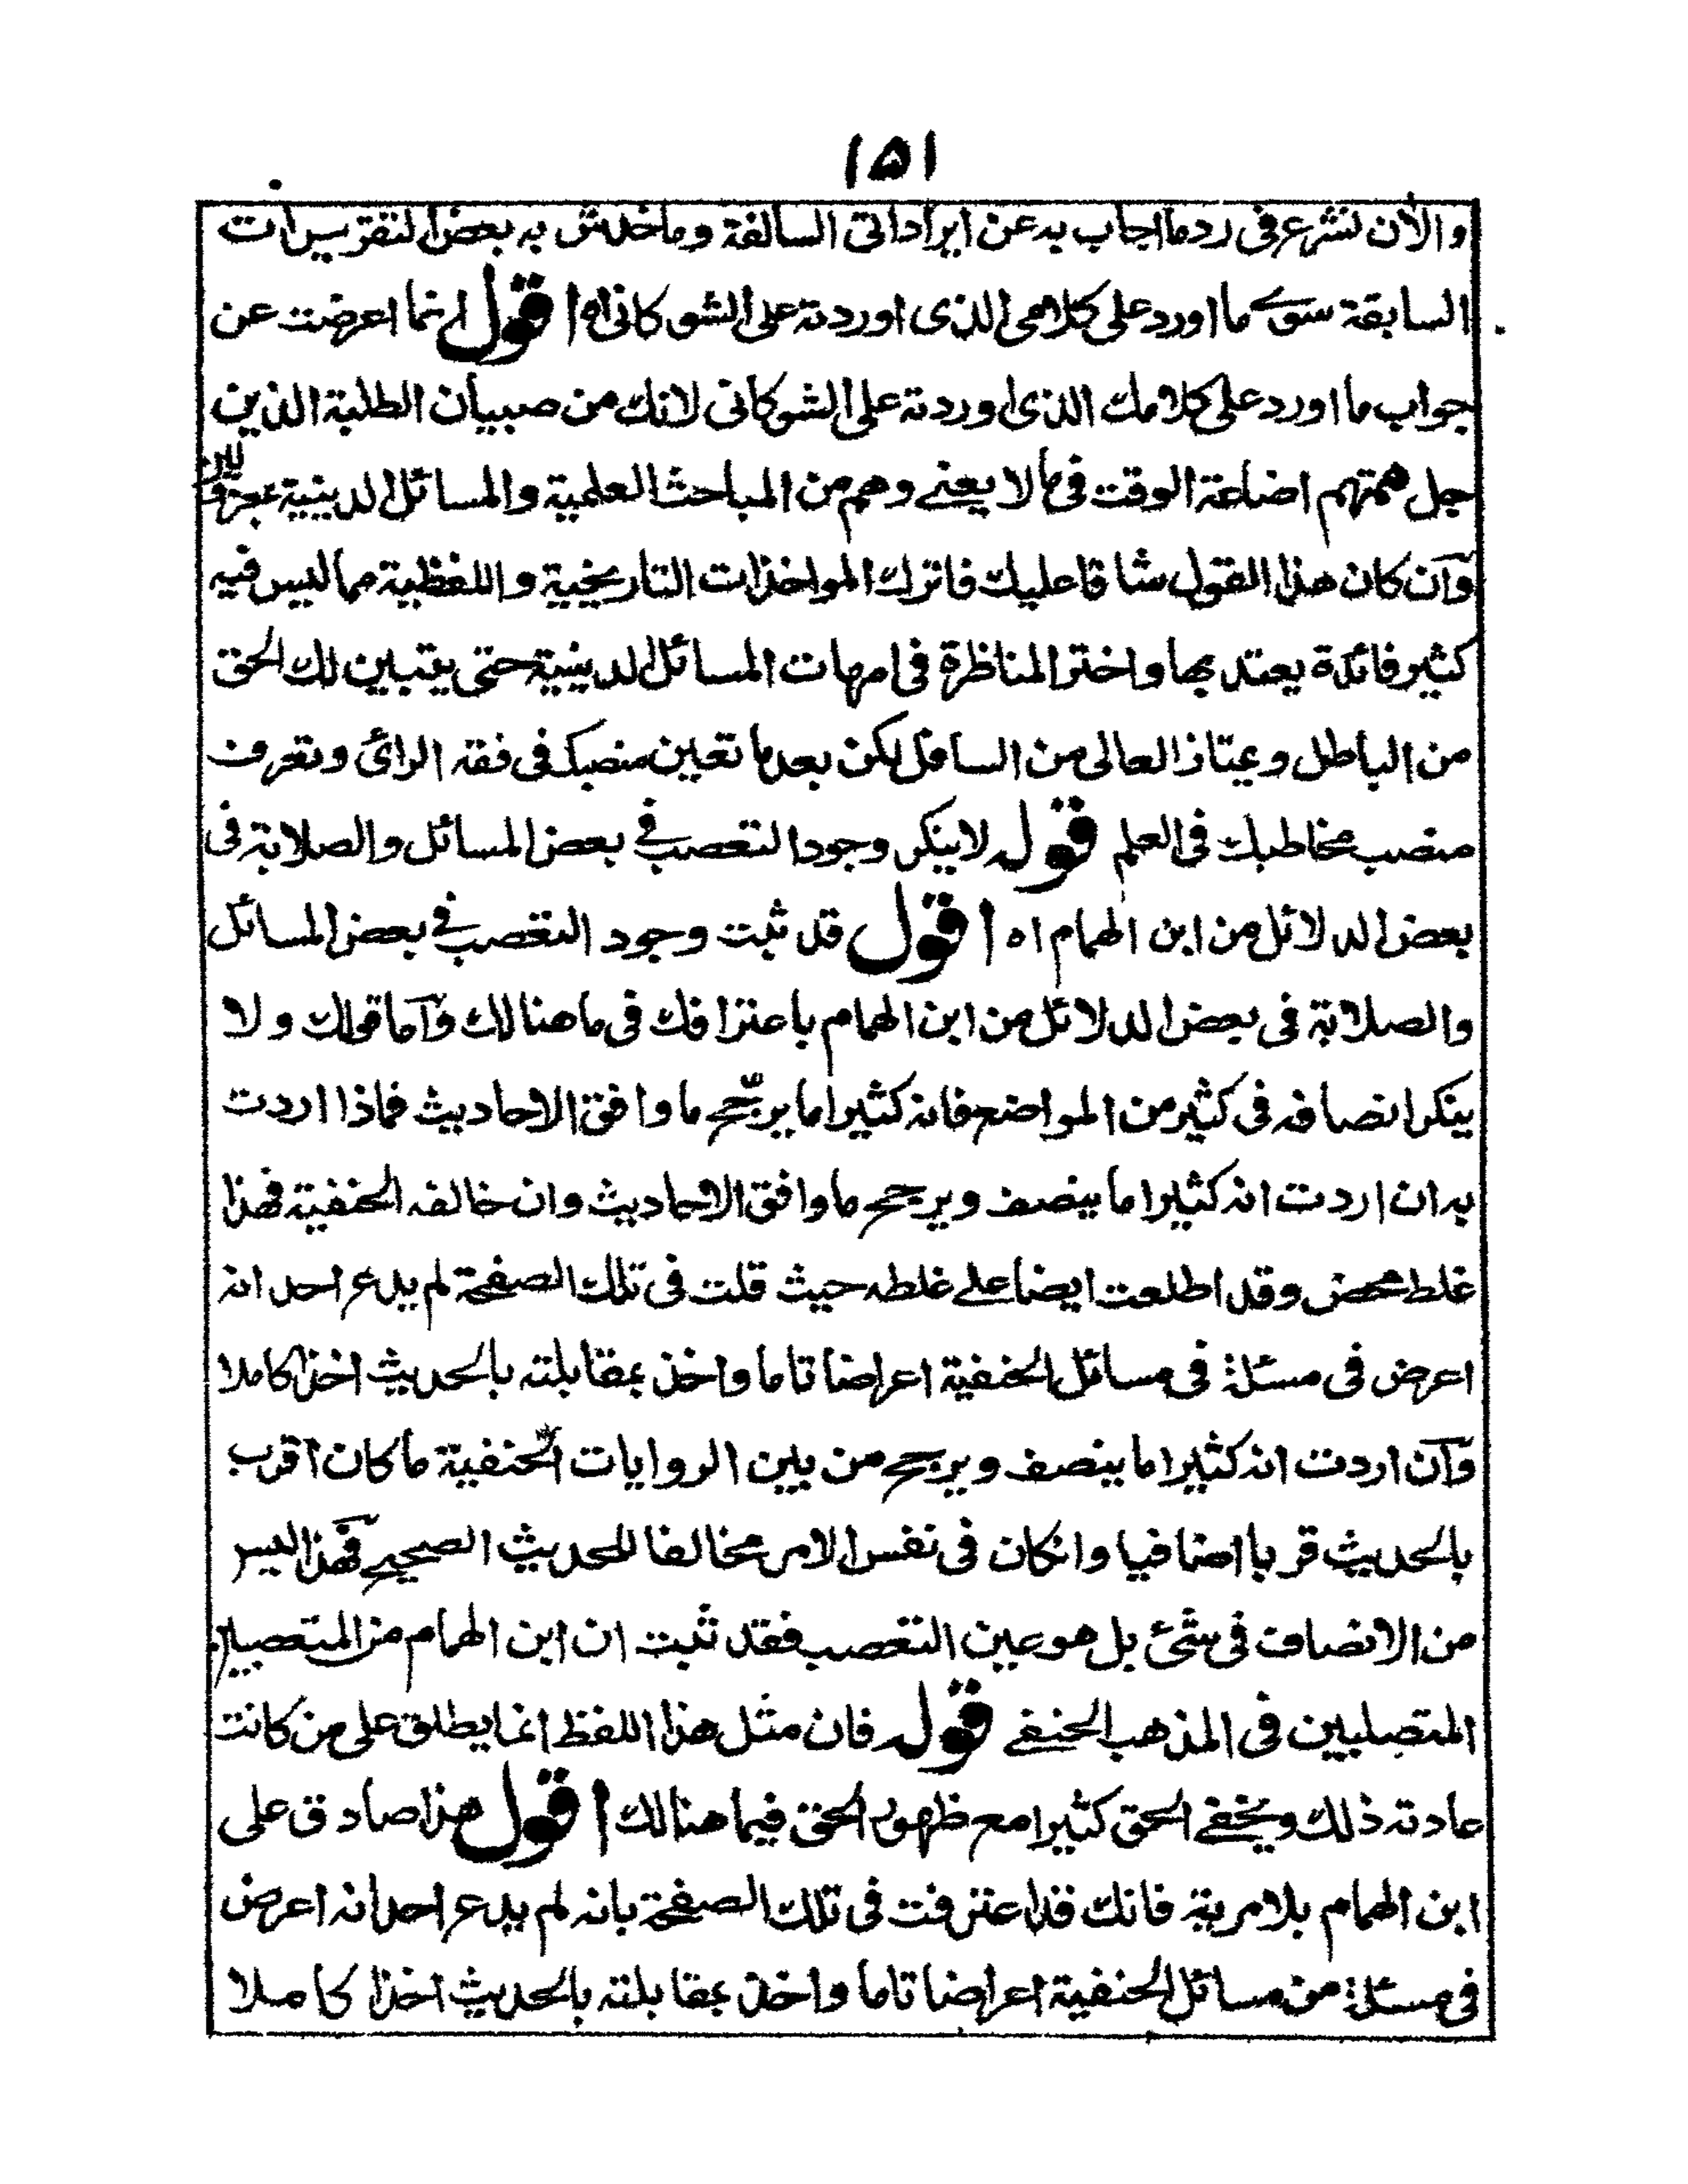 ١٥١
والأن نشرع فى رد ما اجاب به عن ايراداتى السالفة وما خدش به بعض التقريرات
السابقة سوے ما اورد على كلامى الذى اوردته على الشوكانى اه اقول انما اعرضت عن
جواب ما اورد على كلامك الذى اوردته على الشوكانى لانك من صبيان الطلبة الذين
جل همتهم اضاعة الوقت فى ما لا يعنے وهم من المباحث العلمية والمسائل الدينية
وآن كان هذا القول شاقا عليك فاترك المواخذات التاريخية واللفظية مما ليس فيه
كثير فائدة يعتد بها واختر المناظرة فى امهات المسائل الدينية حتى يتبين لك الحق
من الباطل ويمتاز العالى من السافل لكن بعد ما تعين منصبك فى فقه الرائ وتعرف
منصب مخاطبك فى العلم قوله لا ينكر وجود التعصب فے بعض المسائل والصلابة فى
بعض الدلائل من ابن الهمام اه اقول قد ثبت وجود التعصب فے بعض المسائل
والصلابة فى بعض الدلائل من ابن الهمام باعترافك فى ما هنالك وآما قولك ولا
ينكر انصافه فى كثير من المواضع فانه كثيرا ما يرجح ما وافق الاحاديث فماذا اردت
به ان اردت انه كثيرا ما ينصف ويرجح ما وافق الاحاديث وان خالفه الحنفية فهذا
غلط محض وقد اطلعت ايضا علے غلطه حيث قلت فى تلك الصفحة لم يدع احد انه
اعرض فى مسئلة فى مسائل الحنفية اعراضا تاما واخذ بمقابلته بالحديث اخذا كاملا
وآن اردت انه كثيرا ما ينصف ويرجح من بين الروايات الحنفية ما كان اقرب
بالحديث قربا اضافيا وانكان فى نفس الامر مخالفا للحديث الصحيح فهذا ليس
من الانصاف فى شئ بل هو عين التعصب فقد ثبت ان ابن الهمام من المتعصبين
المتصلبين فى المذهب الحنفے قوله فان مثل هذا اللفظ انما يطلق على من كانت
عادته ذلك ويخفے الحق كثيرا مع ظهور الحق فيما هنالك اقول هذا صادق على
ابن الهمام بلا مرية فانك قد اعترفت فى تلك الصفحة بانه لم يدع احد انه اعرض
فى مسئلة من مسائل الحنفية اعراضا تاما واخذ بمقابلته بالحديث اخذا كاملا